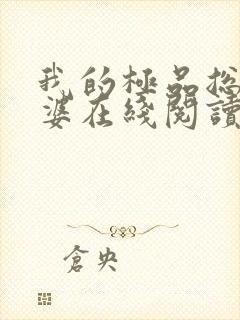 我的極品总
婆在綫閱讀
倉央